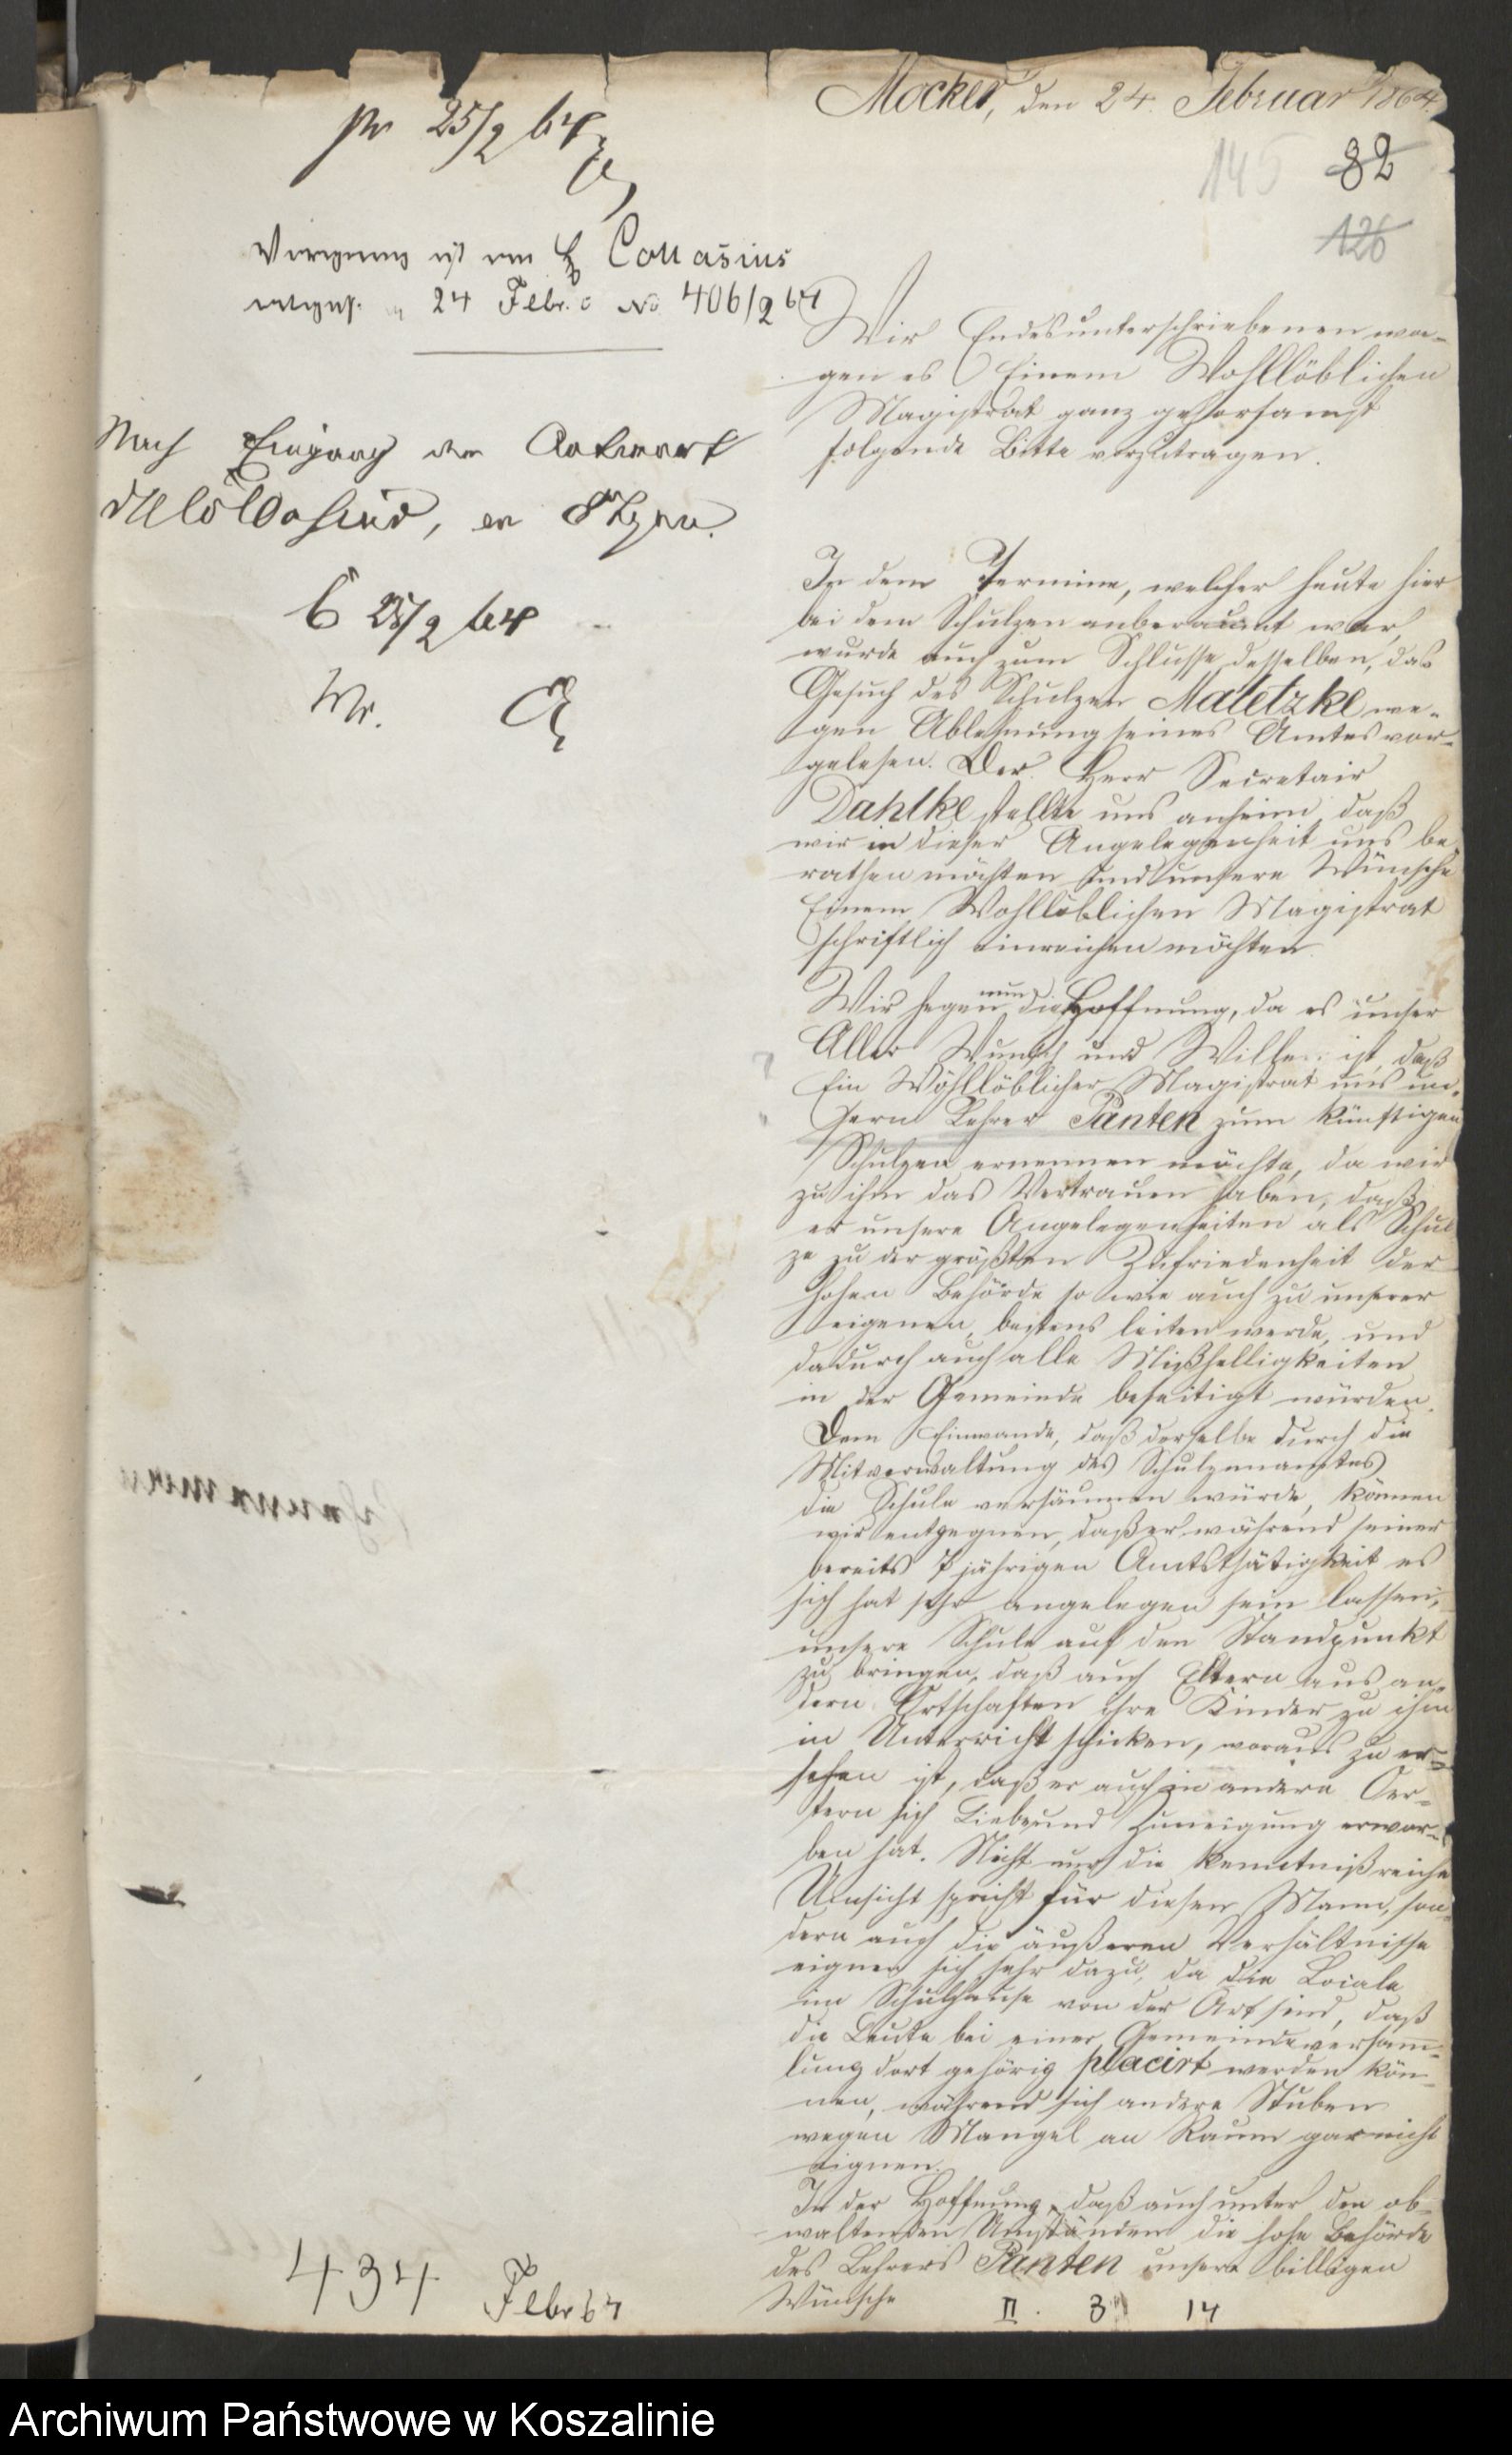 Mocker, den 24. Februar 1864.
pr 25/2 64
145 82
126
ist Collasius
24 Febr. c No 406/2 64
Wir Endesunterschriebenen wa-
gen es Einem Wohllöblichen
Magistrat ganz gehorsamst
folgende Bitte vorzutragen.
Nach Eingang der Antwort
des Collasius,
C 25/2 64
In dem Termine, welcher heute hier
bei dem Schulzen anberaumt war,
wurde auch zum Schlusse desselben, das
Gesuch des Schulzen Maletzke we-
gen Ablehnung seines Amtes vor-
gelesen. Der Herr Secretair
Dahlke stellte uns anheim, daß
wir in dieser Angelegenheit uns be-
rathen möchten und unsere Wünsche
Einem Wohllöblichen Magistrat
schriftlich einreichen möchten.
Wir hegen nun die Hoffnung, da es unser
Aller Wunsch und Willen ist, daß
Ein Wohllöblicher Magistrat uns un-
sern Lehrer Panten zum künftigen
Schulzen ernennen möchte, da wir
zu ihm das Vertrauen haben, daß
er unsere Angelegenheiten als Schul
ze zu der größten Zufriedenheit der
hohen Behörde so wie auch zu unserer
eigenen, bestens leiten werde, und
dadurch auch alle Mißhelligkeiten
in der Gemeinde beseitigt würden.
Dem Einwande, daß derselbe durch die
Mitverwaltung des Schulzenamtes
die Schule versäumen würde, können
wir entgegnen, daß er während seiner
bereits 7 jährigen Amtsthätigkeit es
sich hat sehr angelegen sein lassen,
unsere Schule auf den Standpunkt
zu bringen, daß auch Eltern aus an-
dern Ortschaften ihre Kinder zu ihm
in Unterricht schicken, woraus zu er-
sehen ist, daß er auch in andern Oer-
tern sich Liebe und Zuneigung erwor-
ben hat. Nicht nur die kenntnißreiche
Umsicht spricht für diesen Mann, son-
dern auch die äußeren Verhältnisse
eignen sich sehr dazu, da die Locale
im Schulhause von der Art sind, daß
die Leute bei einer Gemeindeversamm-
lung dort gehörig placirt werden kön-
nen, während sich andere Stuben
wegen Mangel an Raum gar nicht
eignen.
In der Hoffnung, daß auch unter den ob-
waltenden Umständen die hohe Behörde
des Lehrers Panten unsere billigen
Wünsche
II. 3 14
434 Febr 64
Archiwum Państwowe w Koszalinie